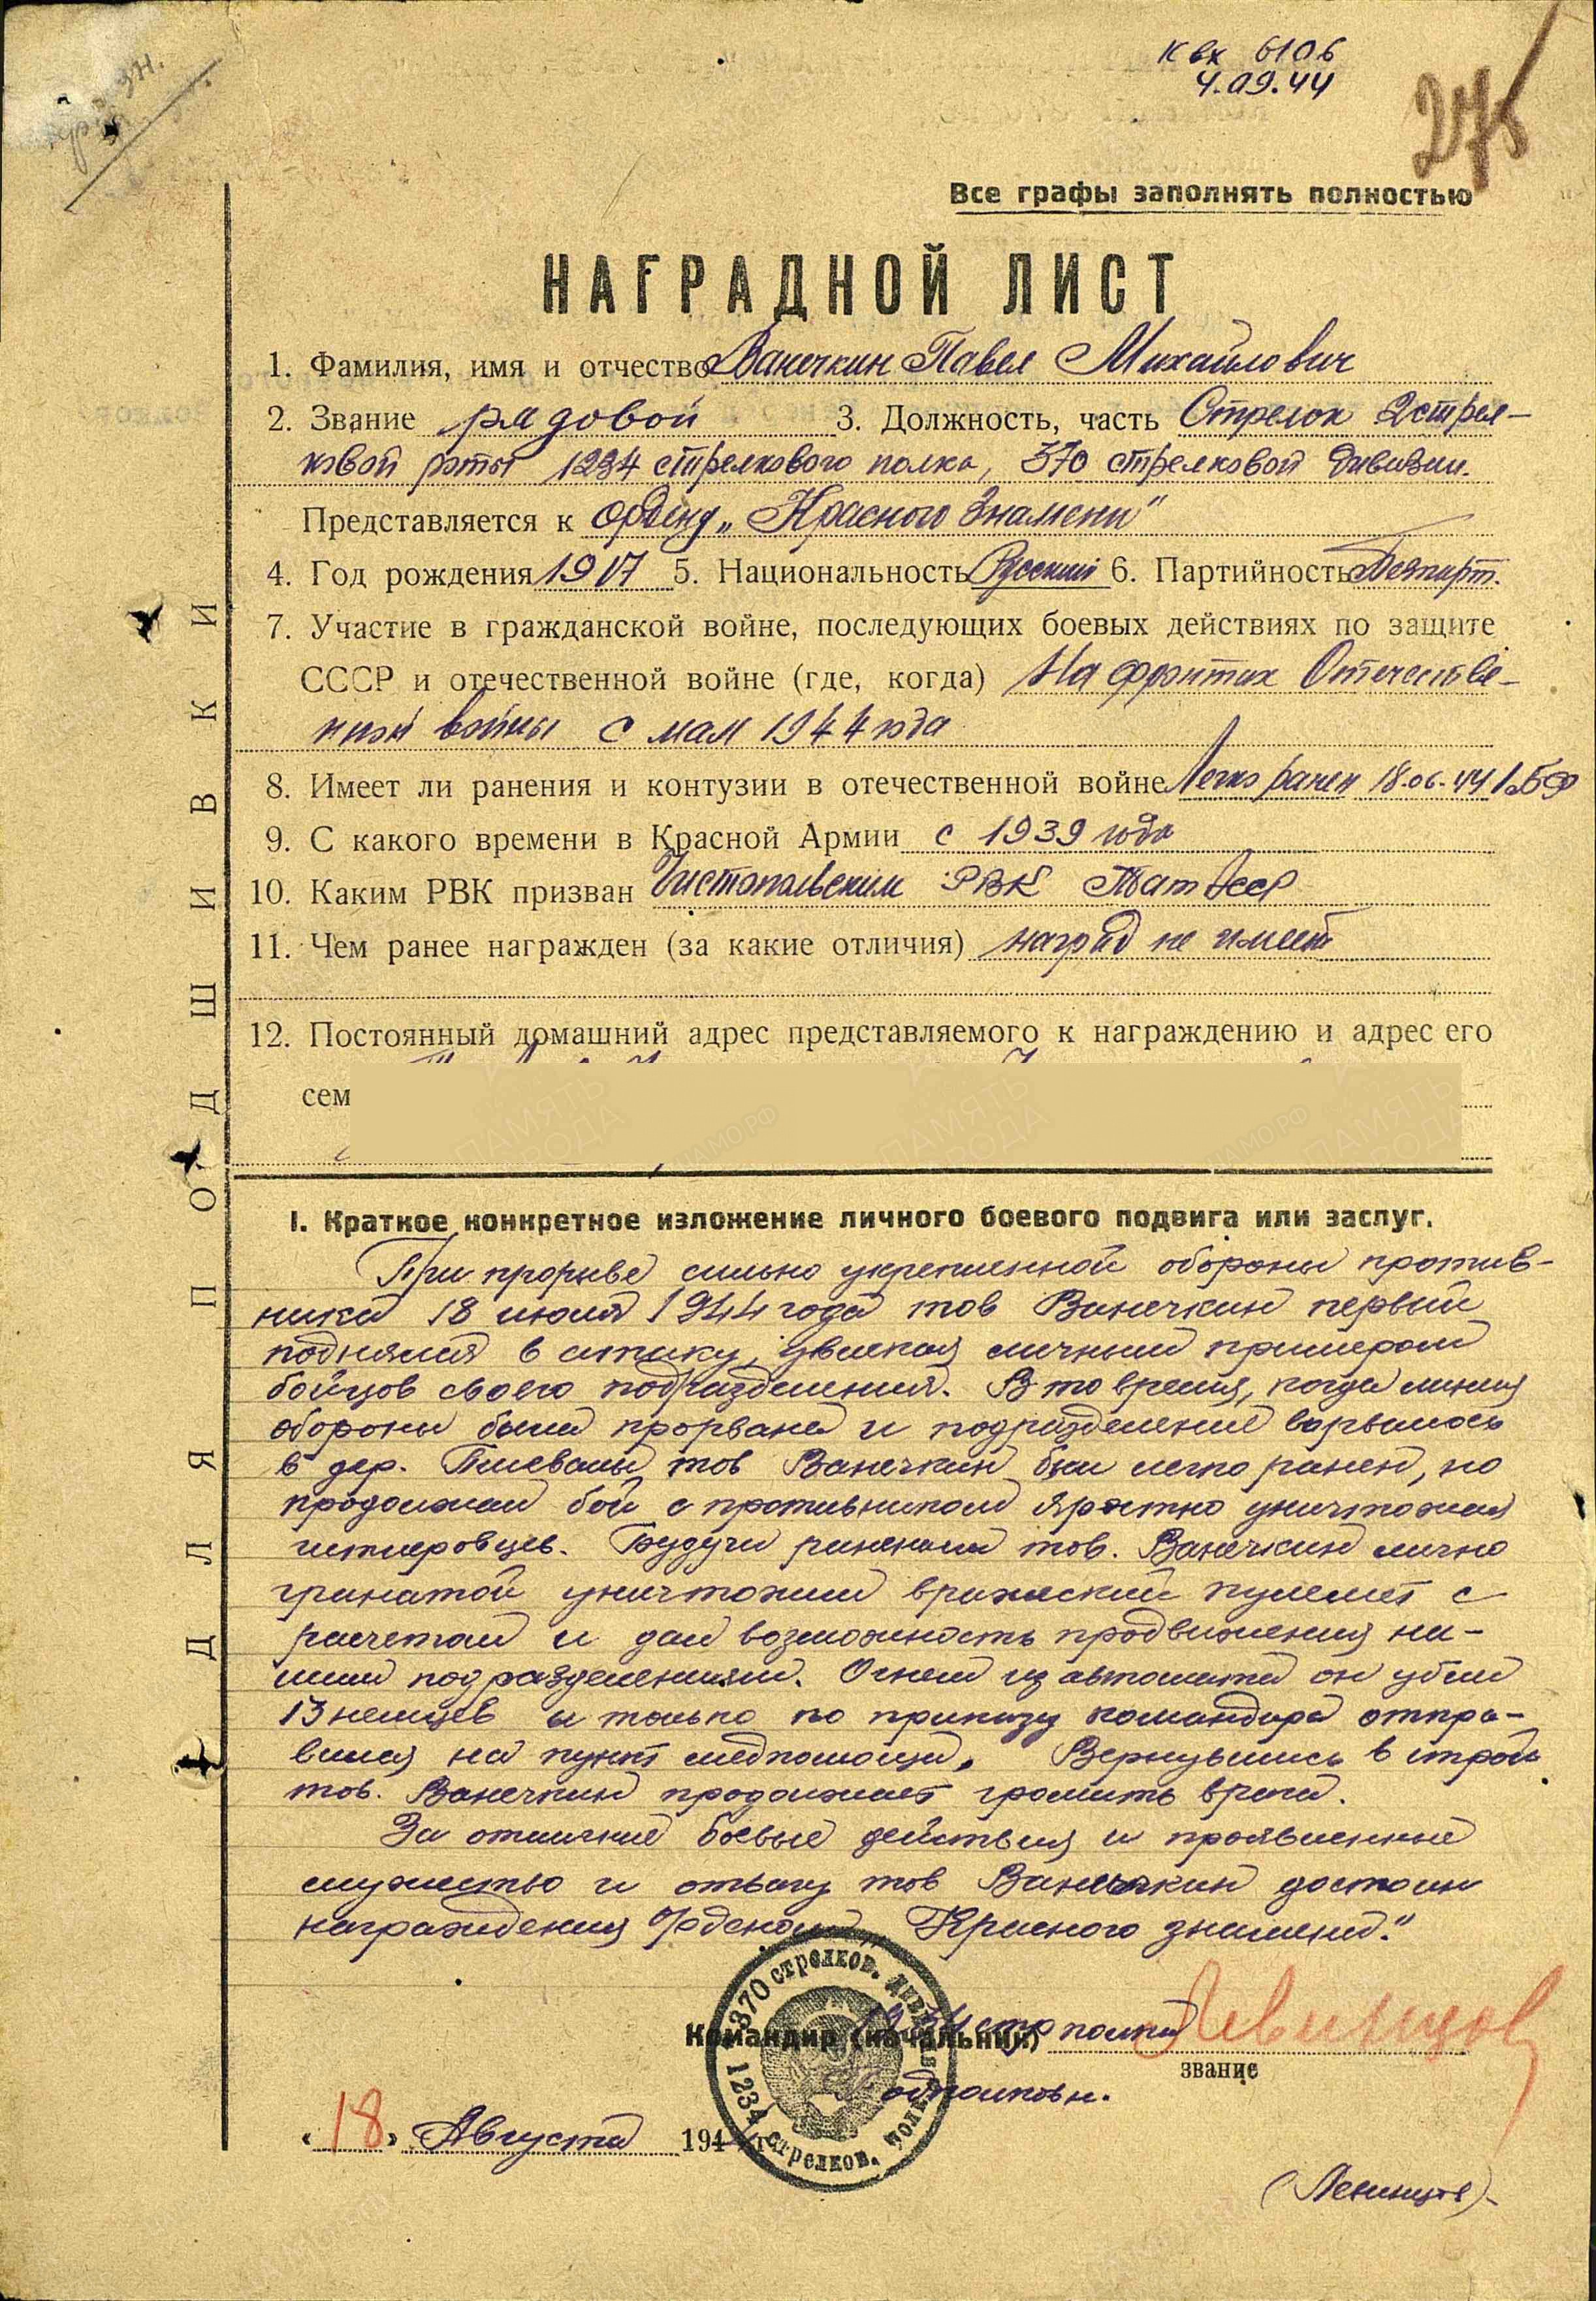 К вх 6106
4.09.44
275
Все графы заполнять полностью
НАГРАДНОЙ ЛИСТ
1. Фамилия, имя и отчество Ванечкин Павел Михайлович
2. Звание рядовой 3. Должность, часть Стрелок 2 стрел-
ковой роты 1234 стрелкового полка, 370 стрелковой дивизии.
Представляется к ордену „Красного Знамени"
4. Год рождения 1917 5. Национальность Русский 6. Партийность Безпарт.
7. Участие в гражданской войне, последующих боевых действиях по защите
СССР и отечественной войне (где, когда) На фронтах Отечестве-
нной войны с мая 1944 года
8. Имеет ли ранения и контузии в отечественной войне Легко ранен 18.06.44 1.БФ
9. С какого времени в Красной Армии с 1939 года
10. Каким РВК призван Чистопольским РВК ТатАССР
11. Чем ранее награжден (за какие отличия) наград не имеет
12. Постоянный домашний адрес представляемого к награждению и адрес его
сем
ДЛЯ ПОДШИВКИ
I. Краткое конкретное изложение личного боевого подвига или заслуг.
При прорыве сильно укрепленной обороны против-
ника 18 июля 1944 года тов Ванечкин первый
поднялся в атаку, увлекая личным примером
бойцов своего подразделения. В то время, когда линия
обороны была прорвана и подразделение ворвалось
в дер. тов Ванечкин был легко ранен, но
продолжал бой с противником яростно уничтожая
гитлеровцев. Будучи раненым тов. Ванечкин лично
гранатой уничтожил вражеский пулемет с
расчетом и дал возможность продвижения на-
шим подразделениям. Огнем из автомата он убил
13 немцев и только по приказу командира отпра-
вился на пункт медпомощи. Вернувшись в строй
тов. Ванечкин продолжает громить врага.
За отличные боевые действия и проявленные
мужество и отвагу тов Ванечкин достоин
награждения Орденом „Красного знамени."
370 стрелков. дивизия
1234 стрелков. полк
Командир (начальник) 1234 стр полка
звание
подполковн.
«18» Августа 194